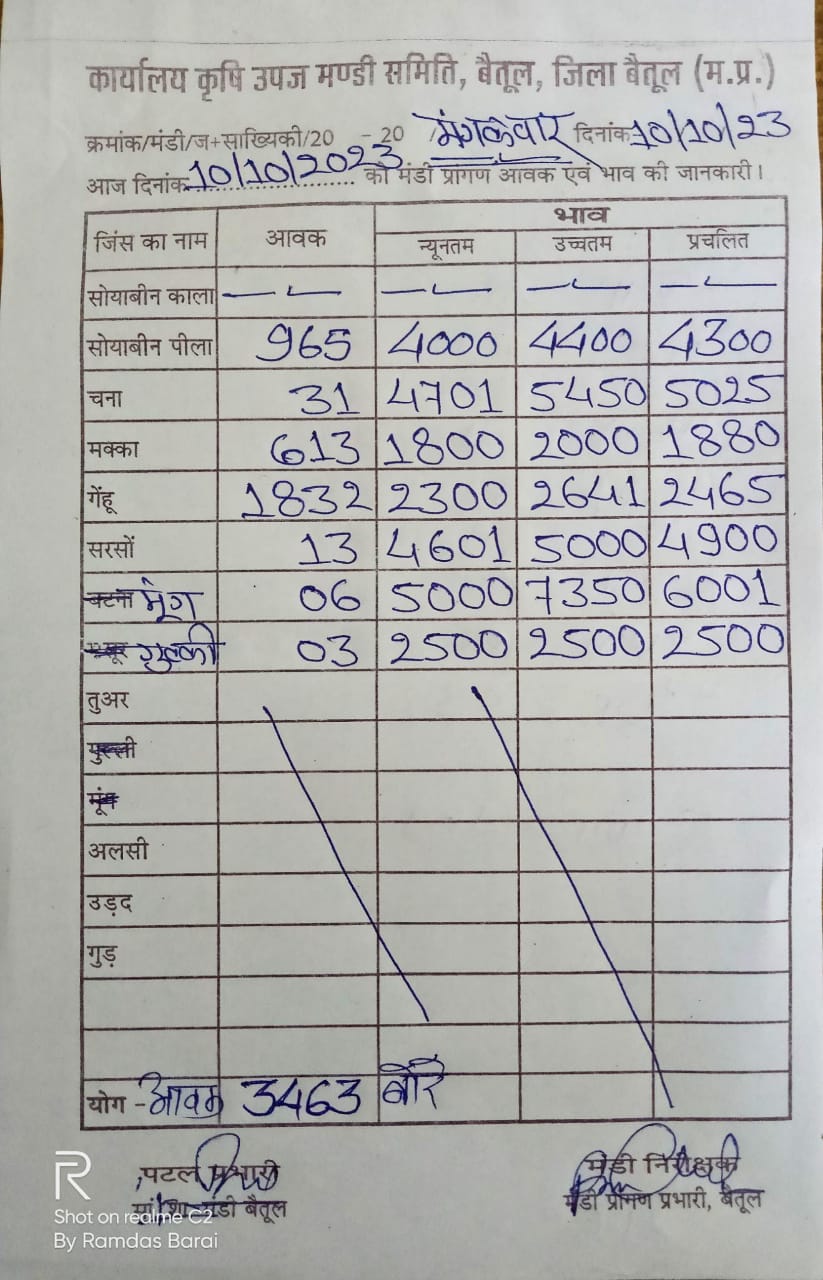 कार्यालय कृषि उपज मण्डी समिति, बैतूल, जिला बैतूल (म.प्र.)
क्रमांक/मंडी/ज+साख्यिकी/20 - 20 / मंगलवार दिनांक 10/10/23
आज दिनांक 10/10/2023 को मंडी प्रांगण आवक एवं भाव की जानकारी।
जिंस का नाम आवक भाव
न्यूनतम उच्चतम प्रचलित
सोयाबीन काला
सोयाबीन पीला 965 4000 4400 4300
चना 31 4701 5450 5025
मक्का 613 1800 2000 1880
गेंहू 1832 2300 2641 2465
सरसों 13 4601 5000 4900
बटना मूंग 06 5000 7350 6001
03 2500 2500 2500
तुअर
मूंग
अलसी
उड़द
गुड़
योग - आवक 3463 बोरे
पटल प्रभारी मंडी निरीक्षक
मंडी बैतूल मंडी प्रांगण प्रभारी, बैतूल
R
Shot on realme C2
By Ramdas Barai